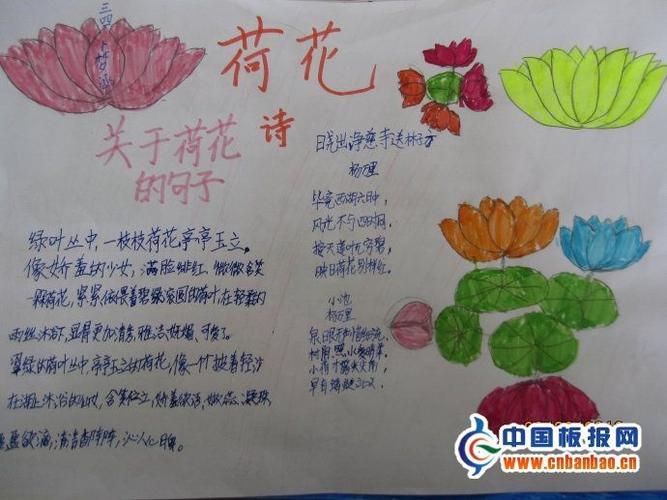 荷花
诗
关于荷花
的句子
绿叶丛中,一枝枝荷花亭亭玉立,
像娇羞的少女,满脸绯红,微微含笑
荷花,紧紧偎着碧绿滚圆的荷叶,在轻柔的
雨丝沐浴下,显得更加清秀,雅洁,妩媚、可爱了。
翠绿的荷叶丛中,亭亭玉立的荷花,像一个披着轻沙
在湖上沐浴的仙女,含笑伫立,娇羞欲语,嫩蕊凝珠
盈盈欲滴,清香阵阵,沁人心脾。
晓出净慈寺送林子方
杨万里
毕竟西湖六月中,
风光不与四时同,
接天莲叶无穷碧,
映日荷花别样红。
小池
杨万里
泉眼无声惜细流,
树阴照水
小荷才露尖尖角,
早有蜻蜓立
中国板报网
www.cnbanbao.cn